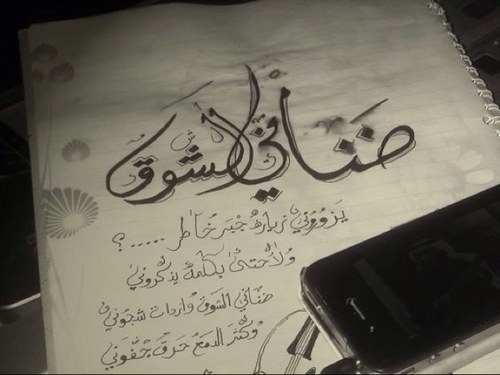 ضناني الشوق
يزوروني زياره جبر خاطر .....؟
ولا حتى بكلمه يذكروني
ضناني الشوق وازدادت شجوني
وكثر الدمع حرق جفوني